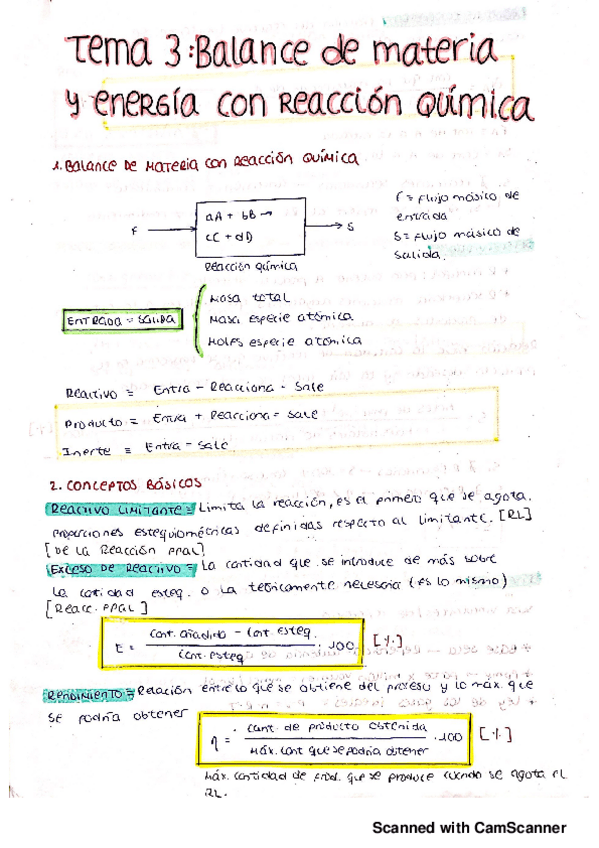 Tema 3: Balance de materia
y energía con Reacción Química
1. Balance de materia con Reacción Química
F
aA + bB →
cC + dD
S
Reacción química
F = flujo másico de
entrada
S = flujo másico de
salida.
ENTRADA = SALIDA
Masa total
Masa especie atómica
Moles especie atómica
Reactivo = Entra - Reacciona = Sale
Producto = Entra + Reacciona = Sale
Inerte = Entra = Sale
2. Conceptos Básicos
Reactivo limitante = Limita la reacción, es el primero que se agota.
proporciones estequiométricas definidas respecto al limitante. [RL]
[De la Reacción ppal]
Exceso de Reactivo = La cantidad que se introduce de más sobre
la cantidad esteq. o la teóricamente necesaria (es lo mismo)
[Reacc. PPAL]
E = cant. añadida - cant. esteq. / cant. esteq · 100 [%]
Rendimiento = Relación entre lo que se obtiene del proceso y lo máx. que
se podría obtener
η = cant. de producto obtenida / Máx. cant que se podria obtener · 100 [%]
Máx. cantidad de prod. que se produce cuando se agota el
RL.
Scanned with CamScanner